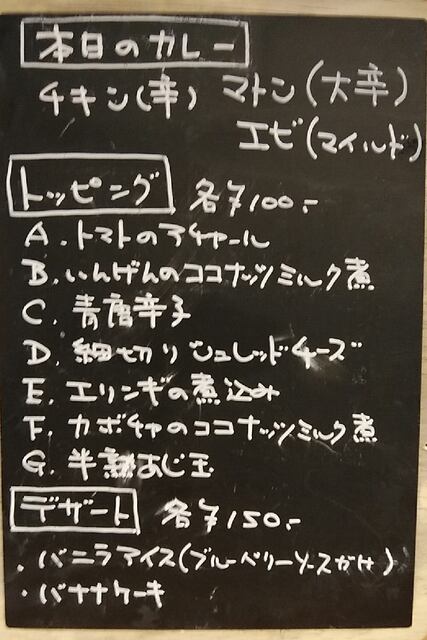 本日のカレー
チキン(辛) マトン(大辛)
エビ(マイルド)
トッピング 各¥100.-
A. トマトのアチャール
B. いんげんのココナッツミルク煮
C. 青唐辛子
D. 細切りシュレッドチーズ
E. エリンギの煮込み
F. カボチャのココナッツミルク煮
G. 半熟あじ玉
デザート 各¥150.-
・バニラアイス(ブルーベリーソースがけ)
・バナナケーキ